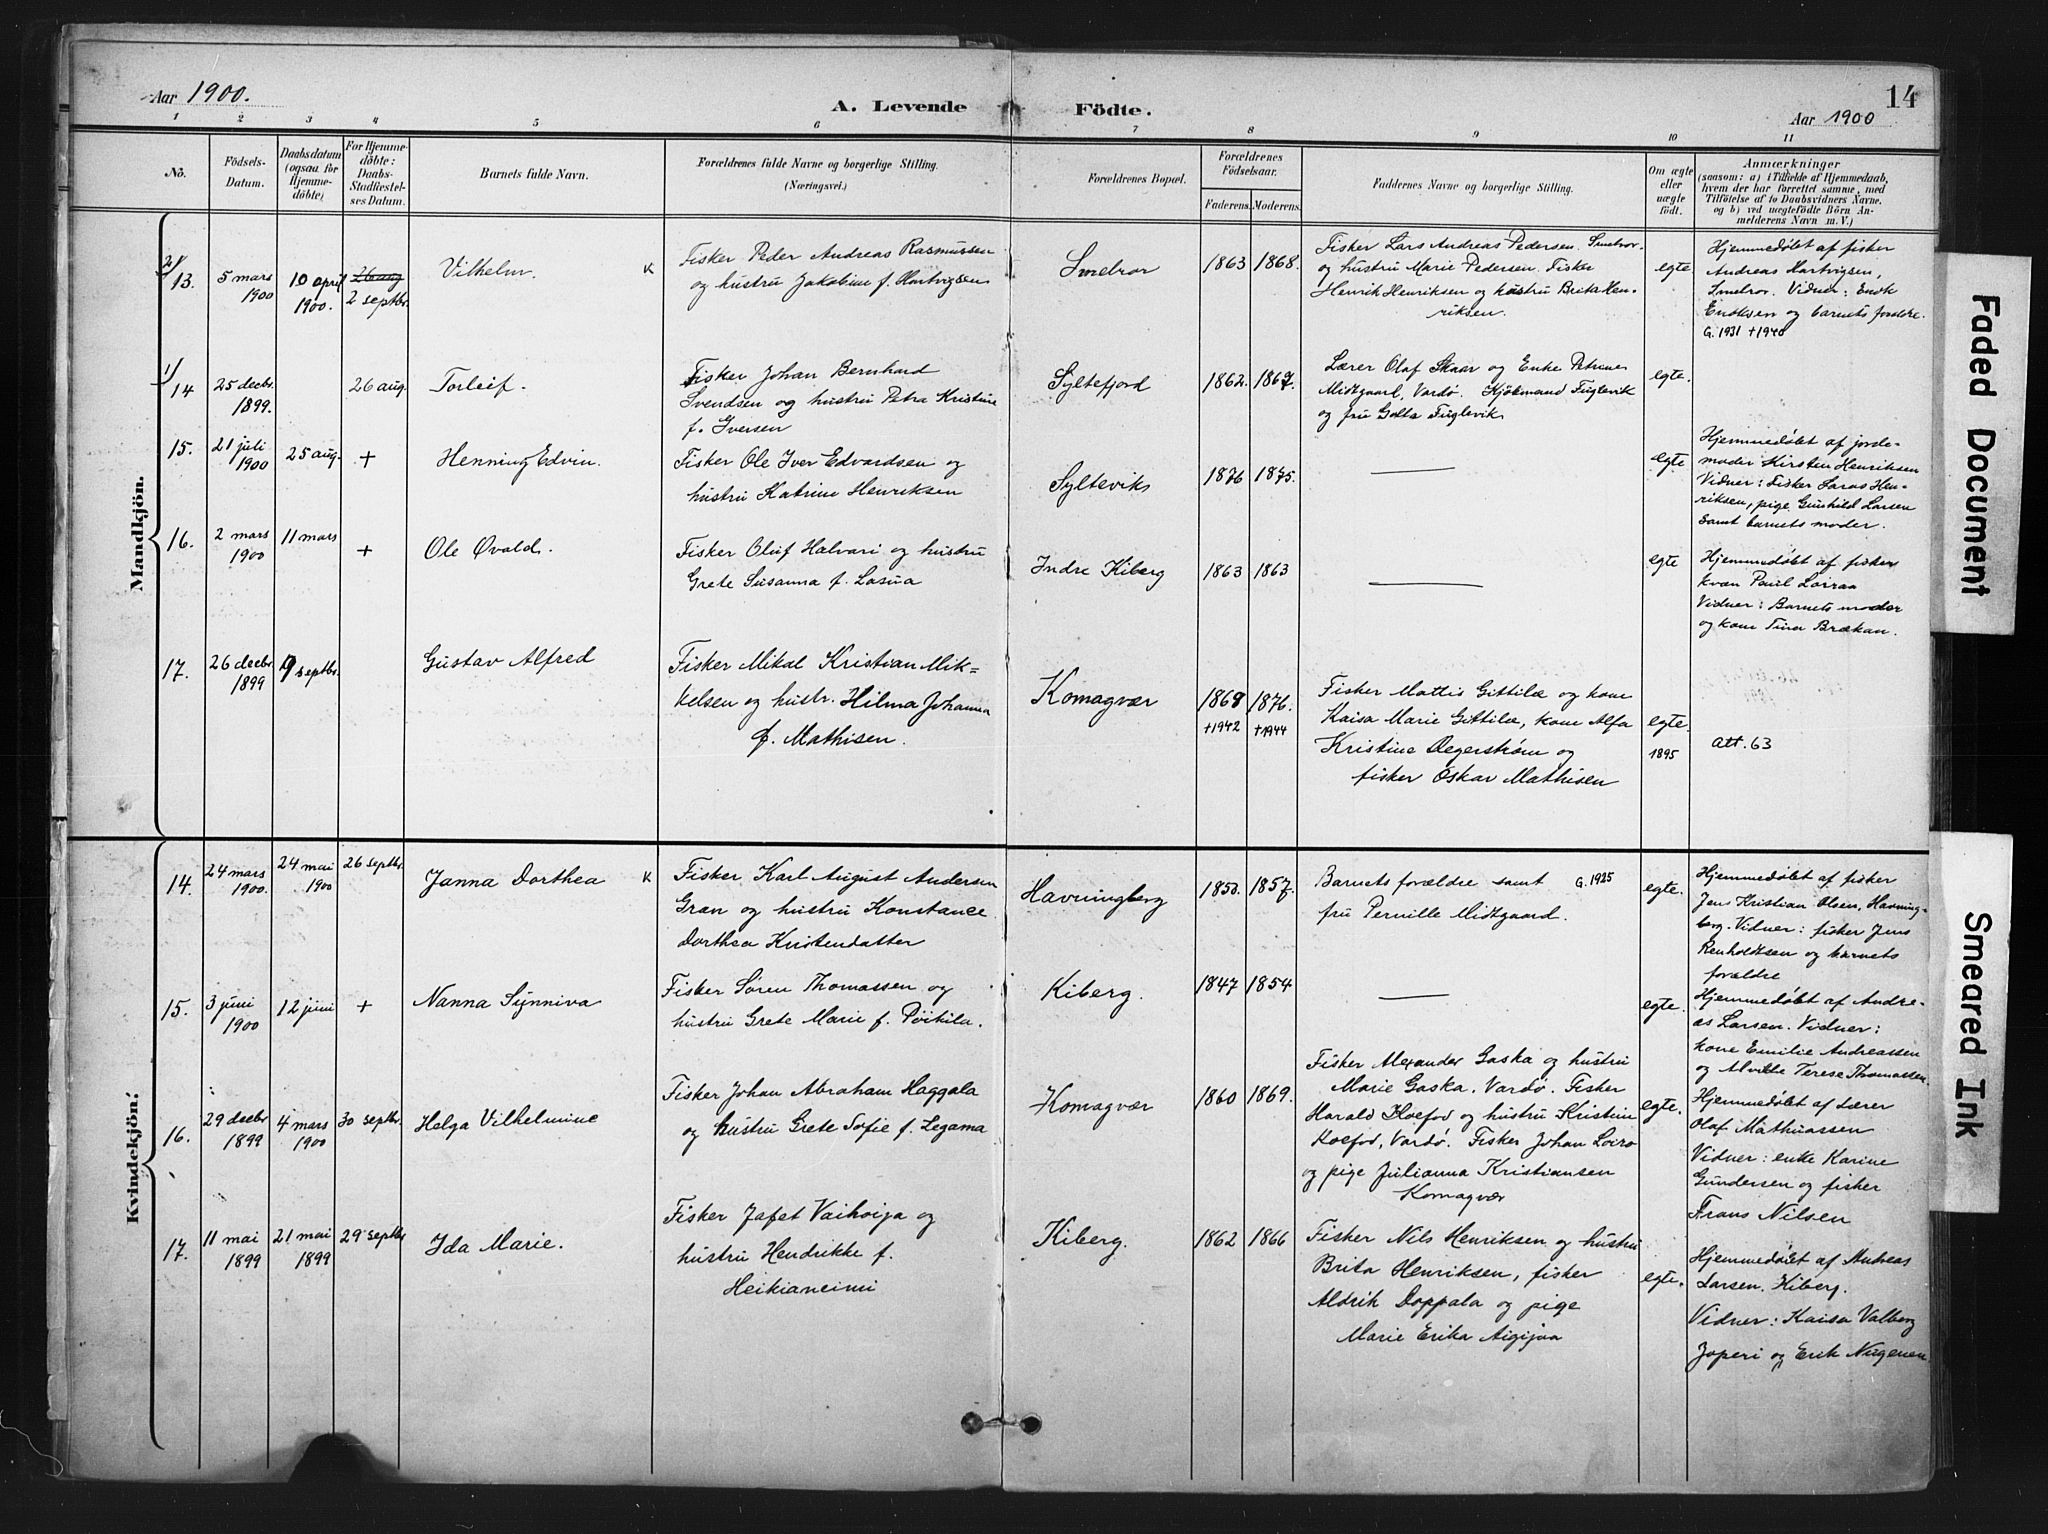 Aar 1900.
A. Levende Födte.
Aar 1900
14
1 2 3 4 5 6 7 8 9 10 11
No.
Födsels-
Datum.
Daabsdatum
(ogsaa for
Hjemme-
döbte)
For Hjemme-
döbte:
Daabs-
Stadfæstel-
ses Datum.
Barnets fulde Navn.
Forældrenes fulde Navne og borgerlige Stilling.
(Næringsvei.)
Forældrenes Bopæl.
Forældrenes
Födselsaar.
Faderens. Moderens.
Faddernes Navne og borgerlige Stilling.
Om ægte
eller
uægte
födt.
Anmærkninger
(saasom: a) i Tilfælde af Hjemmedaab,
hvem der har forrettet samme, med
Tilföielse af to Daabsvidners Navne.
og b) ved uægtefödte Börn An-
melderens Navn m. V.)
Mandkjön.
2/
13.
5 mars
1900
10 april
1900.
26 aug
2 septbr.
Vilhelm. K
Fisker Peder Andreas Rasmussen
og hustru Jakobine f. Hartvigsen
Smelror
1863 1868.
Fisker Lars Andreas Pedersen. Smelror.
og hustru Marie Pedersen. Fisker
Henrik Henriksen og hustru Brita Hen-
riksen.
egte
Hjemmedøbt af fisker
Andreas Hartvigsen,
Smelror. Vidner: Enok
Enoksen og barnets forældre.
G. 1931 +1940
1/
14
25 decbr.
1899.
26 aug.
Torleif.
Fisker Johan Bernhard
Svendsen og hustru Petra Kristine
f. Iversen
Syltefjord
1862. 1867.
Lærer Olaf Skaar og Enke Petrine
Midtgaard, Vardø. Kjøbmand Fuglevik
og fru Golla Fuglevik
egte.
15.
21 juli
1900
25 aug.
+
Henning Edvin.
Fisker Ole Iver Edvardsen og
hustru Katrine Henriksen
Sylteviks
1876 1875.
egte
Hjemmedøbt af jorde-
moder Kirsten Henriksen
Vidner: Fisker Laras Hen-
riksen, pige Gunhild Larsen
samt barnets moder.
16.
2 mars
1900
11 mars
+
Ole Øvald.
Fisker Oluf Halvari og hustru
Grete Susanna f. Lasua
Indre Kiberg
1863 1863
egte
Hjemmedøbt af fisker
kvæn Paul Lorraa
Vidner: Barnets moder
og kone Tina Brækan.
17.
26 decbr.
1899
9 septbr.
Gustav Alfred
Fisker Mikal Kristian Mik-
kelsen og hustr. Hilma Johanna
f. Mathisen.
Komagvær
1868 1876.
+1942 +1944
Fisker Mattis Gittilæ og kone
Kaisa Marie Gittilæ, kone Alfa
Kristine Degerstrøm og
fisker Oskar Mathisen
egte.
1895
Att. 63
Kvindekjön.
14.
24 mars
1900.
24 mai
1900
26 septbr.
Janna Dorthea K
Fisker Karl August Andersen
Gran og hustru Konstance
Dorthea Kristendatter
Havningberg
1850. 1857.
Barnets forældre samt G. 1925
fru Pernille Midtgaard.
egte.
Hjemmedøbt af fisker
Jens Kristian Olsen, Havning-
berg. Vidner: fisker Jens
Renholdtsen og barnets
forældre
15.
3 juni
1900
12 juni
+
Nanna Synniva
Fisker Søren Thomassen og
hustru Grete Marie f. Pöikila.
Kiberg.
1847 1854
egte.
Hjemmedøbt af Andre-
as Larsen. Vidner:
kone Emilie Andreassen
og Alvilde Terese Thomassen.
16.
29 decbr
1899
4 mars
1900
30 septbr.
Helga Vilhelmine
Fisker Johan Abraham Haggala
og hustru Grete Sofie f. Legama
Komagvær
1860 1869.
Fisker Alexander Gaska og hustru
Marie Gaska. Vardø. Fisker
Harald Koefod og hustru Kristine
Koefod, Vardø. Fisker Johan Loiro
og pige Julianna Kristiansen
Komagvær
egte.
Hjemmedøbt af Lærer
Olaf Mathiassen
Vidner: enke Karine
Gundersen og fisker
Frans Nilsen
17.
11 mai
1899
21 mai
1899
29 septbr
Ida Marie.
Fisker Jafet Vaihoija og
hustru Hendrikke f.
Heikianeimi
Kiberg.
1862 1866
Fisker Nils Henriksen og hustru
Brita Henriksen, fisker
Aldrik Doppala og pige
Marie Erika Aigijaa
egte.
Hjemmedøbt af Andreas
Larsen. Kiberg.
Vidner: Kaisa Valberg
Joperi og Erik Nugenen
Faded Document
Smeared Ink